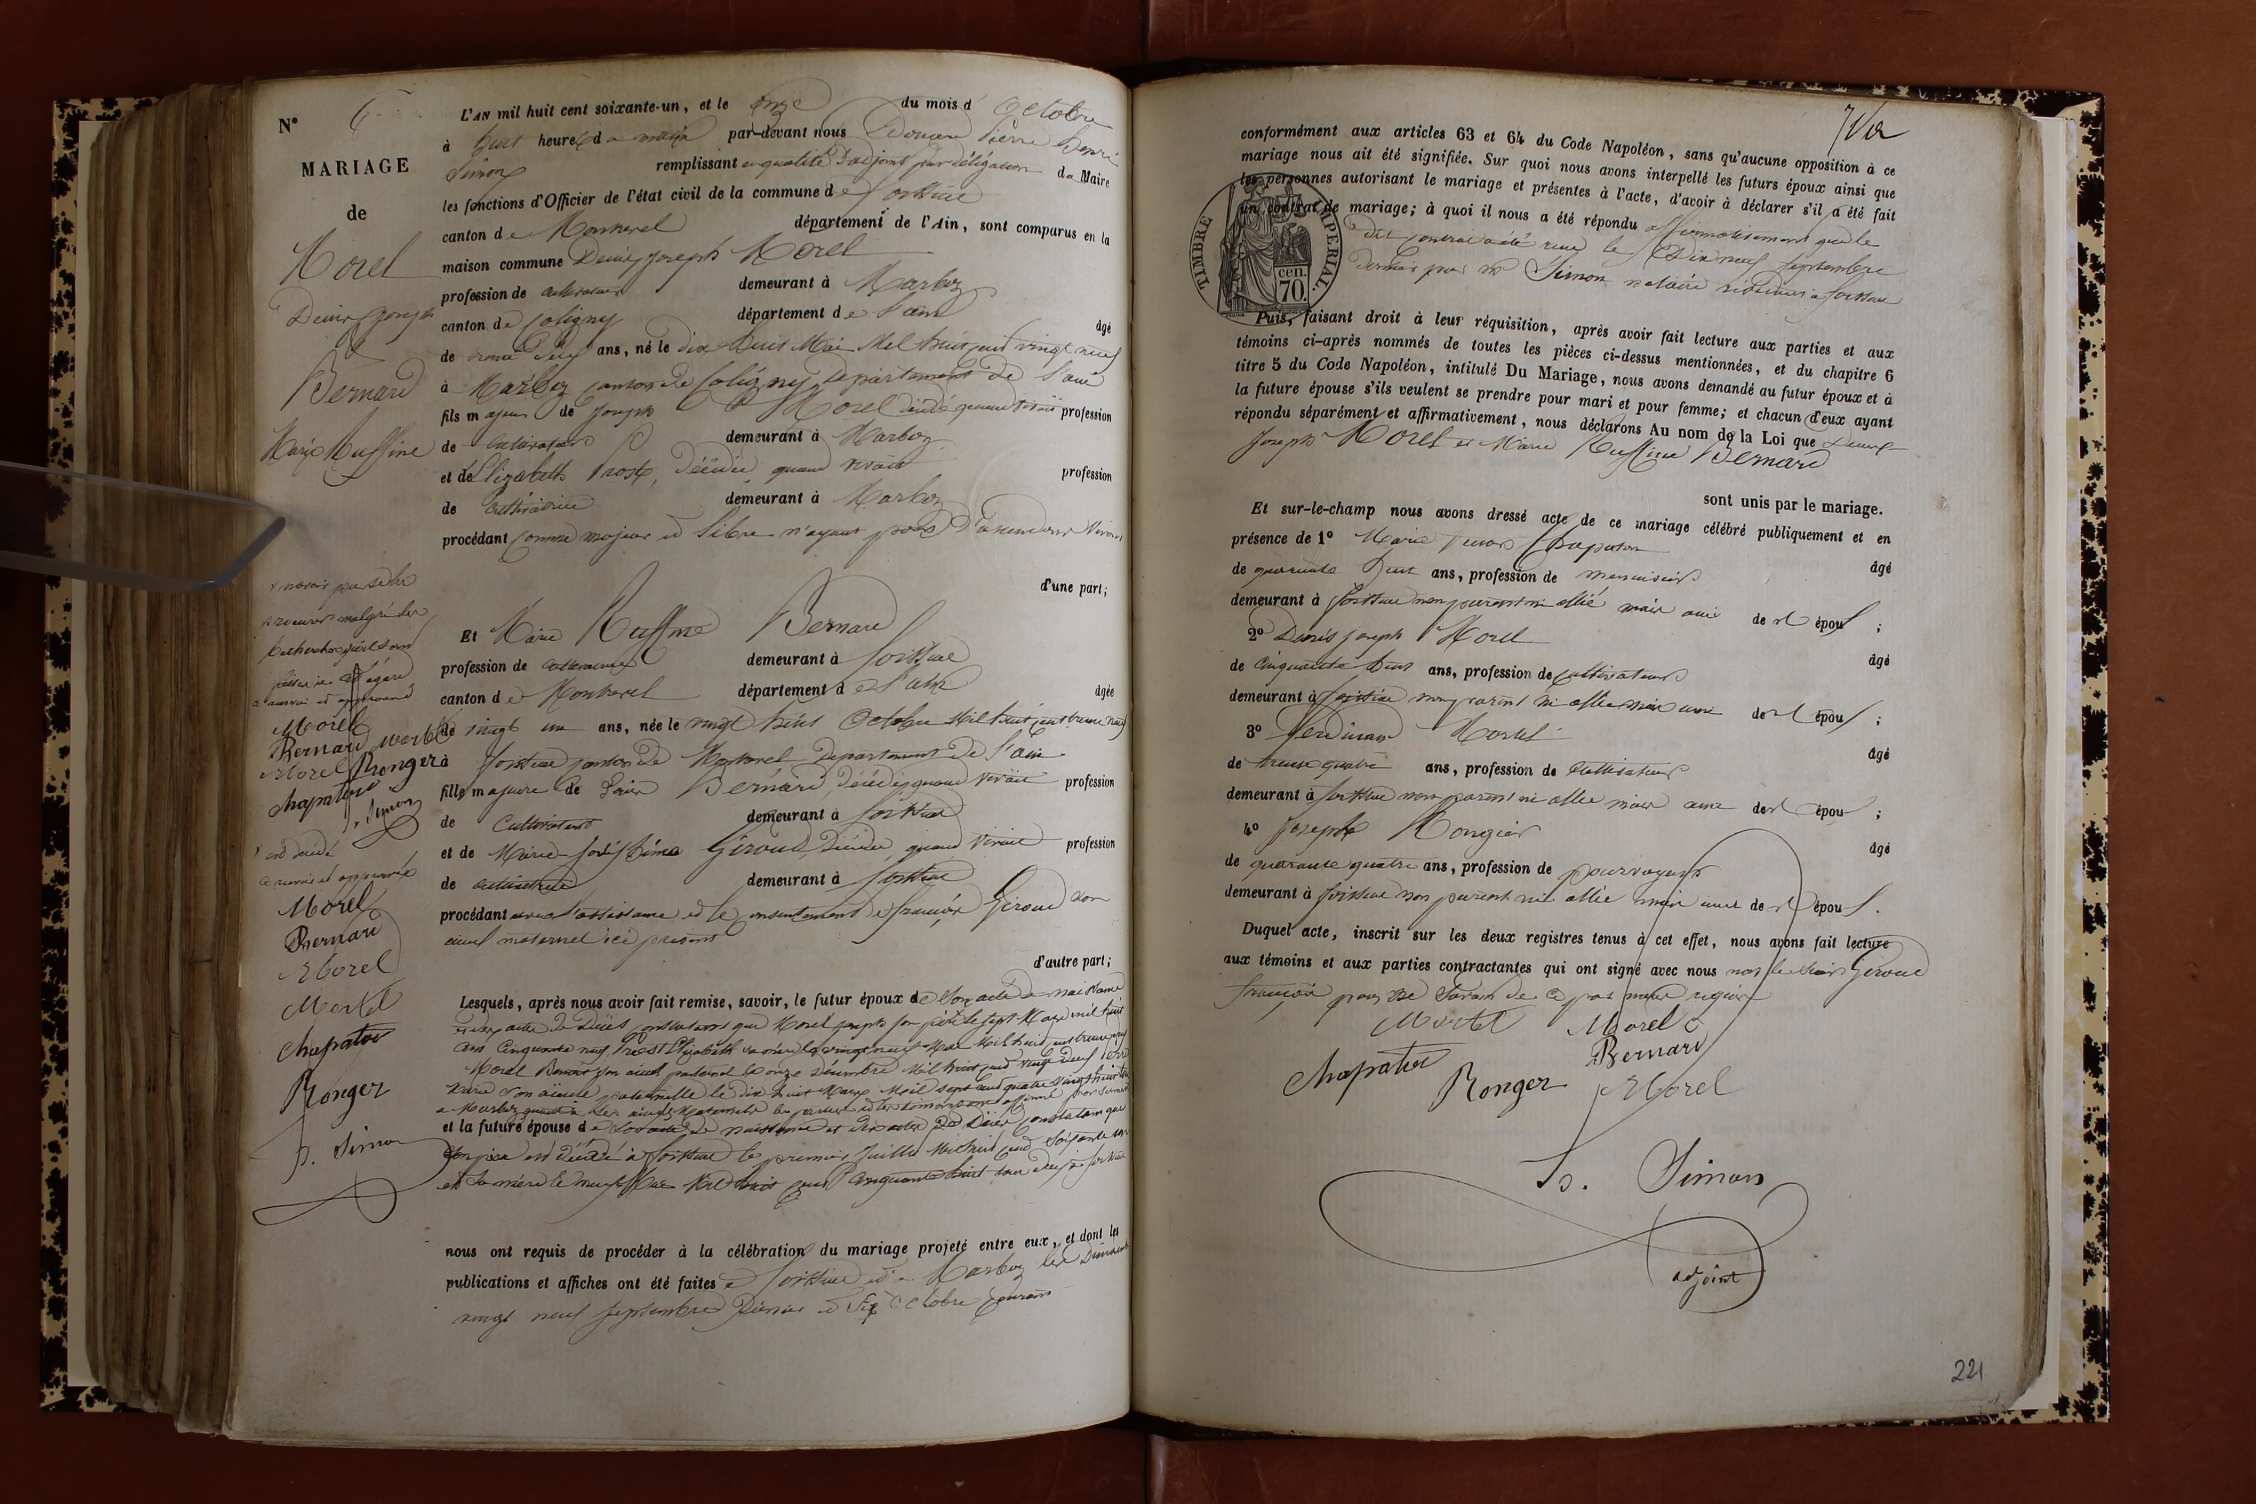 N° 6
MARIAGE
de
Morel
Denis Joseph
Bernard
Marie Ruffine
L'AN mil huit cent soixante-un, et le onze du mois d'Octobre
à huit heures du matin par-devant nous Edouard Pierre Henri
Simon remplissant en qualité d'adjoint par délégation du Maire
les fonctions d'Officier de l'état civil de la commune de Foissiat
canton de Montrevel département de l'Ain, sont comparus en la
maison commune Denis Joseph Morel
profession de cultivateur demeurant à Marboz
canton de Coligny département de l'ain âgé
de trente deux ans, né le dix huit Mai Mil huit cent vingt neuf
à Marboz canton de Coligny département de l'ain
fils majeur de Joseph Morel décédé quand vivait profession
de cultivateur demeurant à Marboz
et de Elizabeth Prost, décédée quand vivait profession
de cultivatrice demeurant à Marboz
procédant comme majeur et libre n'ayant plus d'ascendans vivans
d'une part;
Et Marie Ruffine Bernard
profession de cultivatrice demeurant à Foissiat
canton de Montrevel département de l'ain âgée
de vingt un ans, née le vingt huit Octobre Mil huit cent trente neuf
à Foissiat canton de Montrevel département de l'ain
fille majeure de Bernard, décédé quand vivait profession
de cultivateur demeurant à Foissiat
et de Marie Giroud, décédée, quand vivait profession
de cultivatrice demeurant à Foissiat
procédant avec l'assistance et le consentement de françois Giroud son
aieul maternel ici présent
d'autre part;
Lesquels, après nous avoir fait remise, savoir, le futur époux de son acte de naissance
et des actes de Décès constatans que Morel Joseph son père le sept Mars mil huit
cent cinquante neuf, Prost Elizabeth sa mère le vingt neuf Mil huit cent trente neuf
Morel Benoit son aieul paternel le onze décembre Mil huit cent vingt deux
son aieule paternelle le dix huit Mars Mil sept cent quatre vingt huit
à Marboz quand à ses aieuls Maternels les parties et les témoins ont affirmé par serment
et la future épouse de son acte de naissance et des actes de Décès constatans que
son père est décédé à Foissiat le premier Juillet Mil huit cent soixante un
et sa mère le neuf Mai Mil huit cent cinquante huit tous deux à Foissiat
nous ont requis de procéder à la célébration du mariage projeté entre eux, et dont les
publications et affiches ont été faites à Foissiat et à Marboz les Dimanches
vingt neuf septembre dernier et six octobre courant
malgré les
recherches
Morel
Bernard Mortel
Morel Ronger
Chapatou
h. Simon
est décédé
ce renvoi est approuvé
Morel
Bernard
Morel
Mortel
Chapatou
Ronger
h. Simon
conformément aux articles 63 et 64 du Code Napoléon, sans qu'aucune opposition à ce
mariage nous ait été signifiée. Sur quoi nous avons interpellé les futurs époux ainsi que
les personnes autorisant le mariage et présentes à l'acte, d'avoir à déclarer s'il a été fait
un contrat de mariage; à quoi il nous a été répondu affirmativement que le
dit contrat a été reçu le Dix neuf septembre
dernier par me Simon notaire résidant à Foissiat
TIMBRE IMPERIAL.
cen.
70.
Puis, faisant droit à leur réquisition, après avoir fait lecture aux parties et aux
témoins ci-après nommés de toutes les pièces ci-dessus mentionnées, et du chapitre 6
titre 5 du Code Napoléon, intitulé Du Mariage, nous avons demandé au futur époux et à
la future épouse s'ils veulent se prendre pour mari et pour femme; et chacun d'eux ayant
répondu séparément et affirmativement, nous déclarons Au nom de la Loi que Denis
Joseph Morel et Marie Ruffine Bernard
sont unis par le mariage.
Et sur-le-champ nous avons dressé acte de ce mariage célébré publiquement et en
présence de 1° Marie Chapatou âgé
de quarante huit ans, profession de menuisier
demeurant à Foissiat non parent ni allié mais ami des époux;
2° Denis Joseph Morel âgé
de cinquante huit ans, profession de cultivateur
demeurant à Foissiat non parent ni allié mais ami des époux;
3° Ferdinand Mortel âgé
de trente quatre ans, profession de cultivateur
demeurant à Foissiat non parent ni allié mais ami des époux;
4° Joseph Rongier âgé
de quarante quatre ans, profession de pourvoyeur
demeurant à Foissiat non parent ni allié mais ami des époux.
Duquel acte, inscrit sur les deux registres tenus à cet effet, nous avons fait lecture
aux témoins et aux parties contractantes qui ont signé avec nous non le sieur Giroud
françois pour ne savoir de ce par nous requis
Mortel Morel
Chapatou Bernard
Ronger Morel
h. Simon
adjoint
221